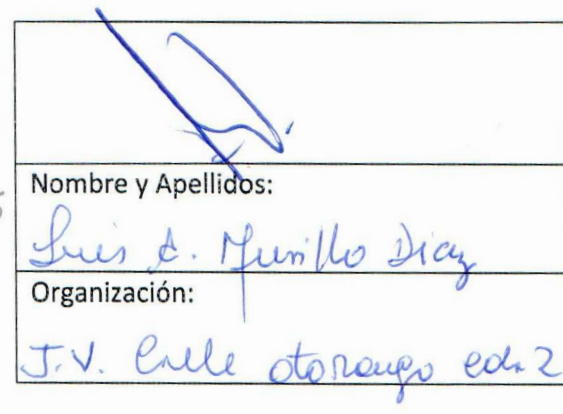 Nombre y Apellidos:
Luis A. Murillo Diaz
Organización:
J.V. Calle otorongo cdr. 2